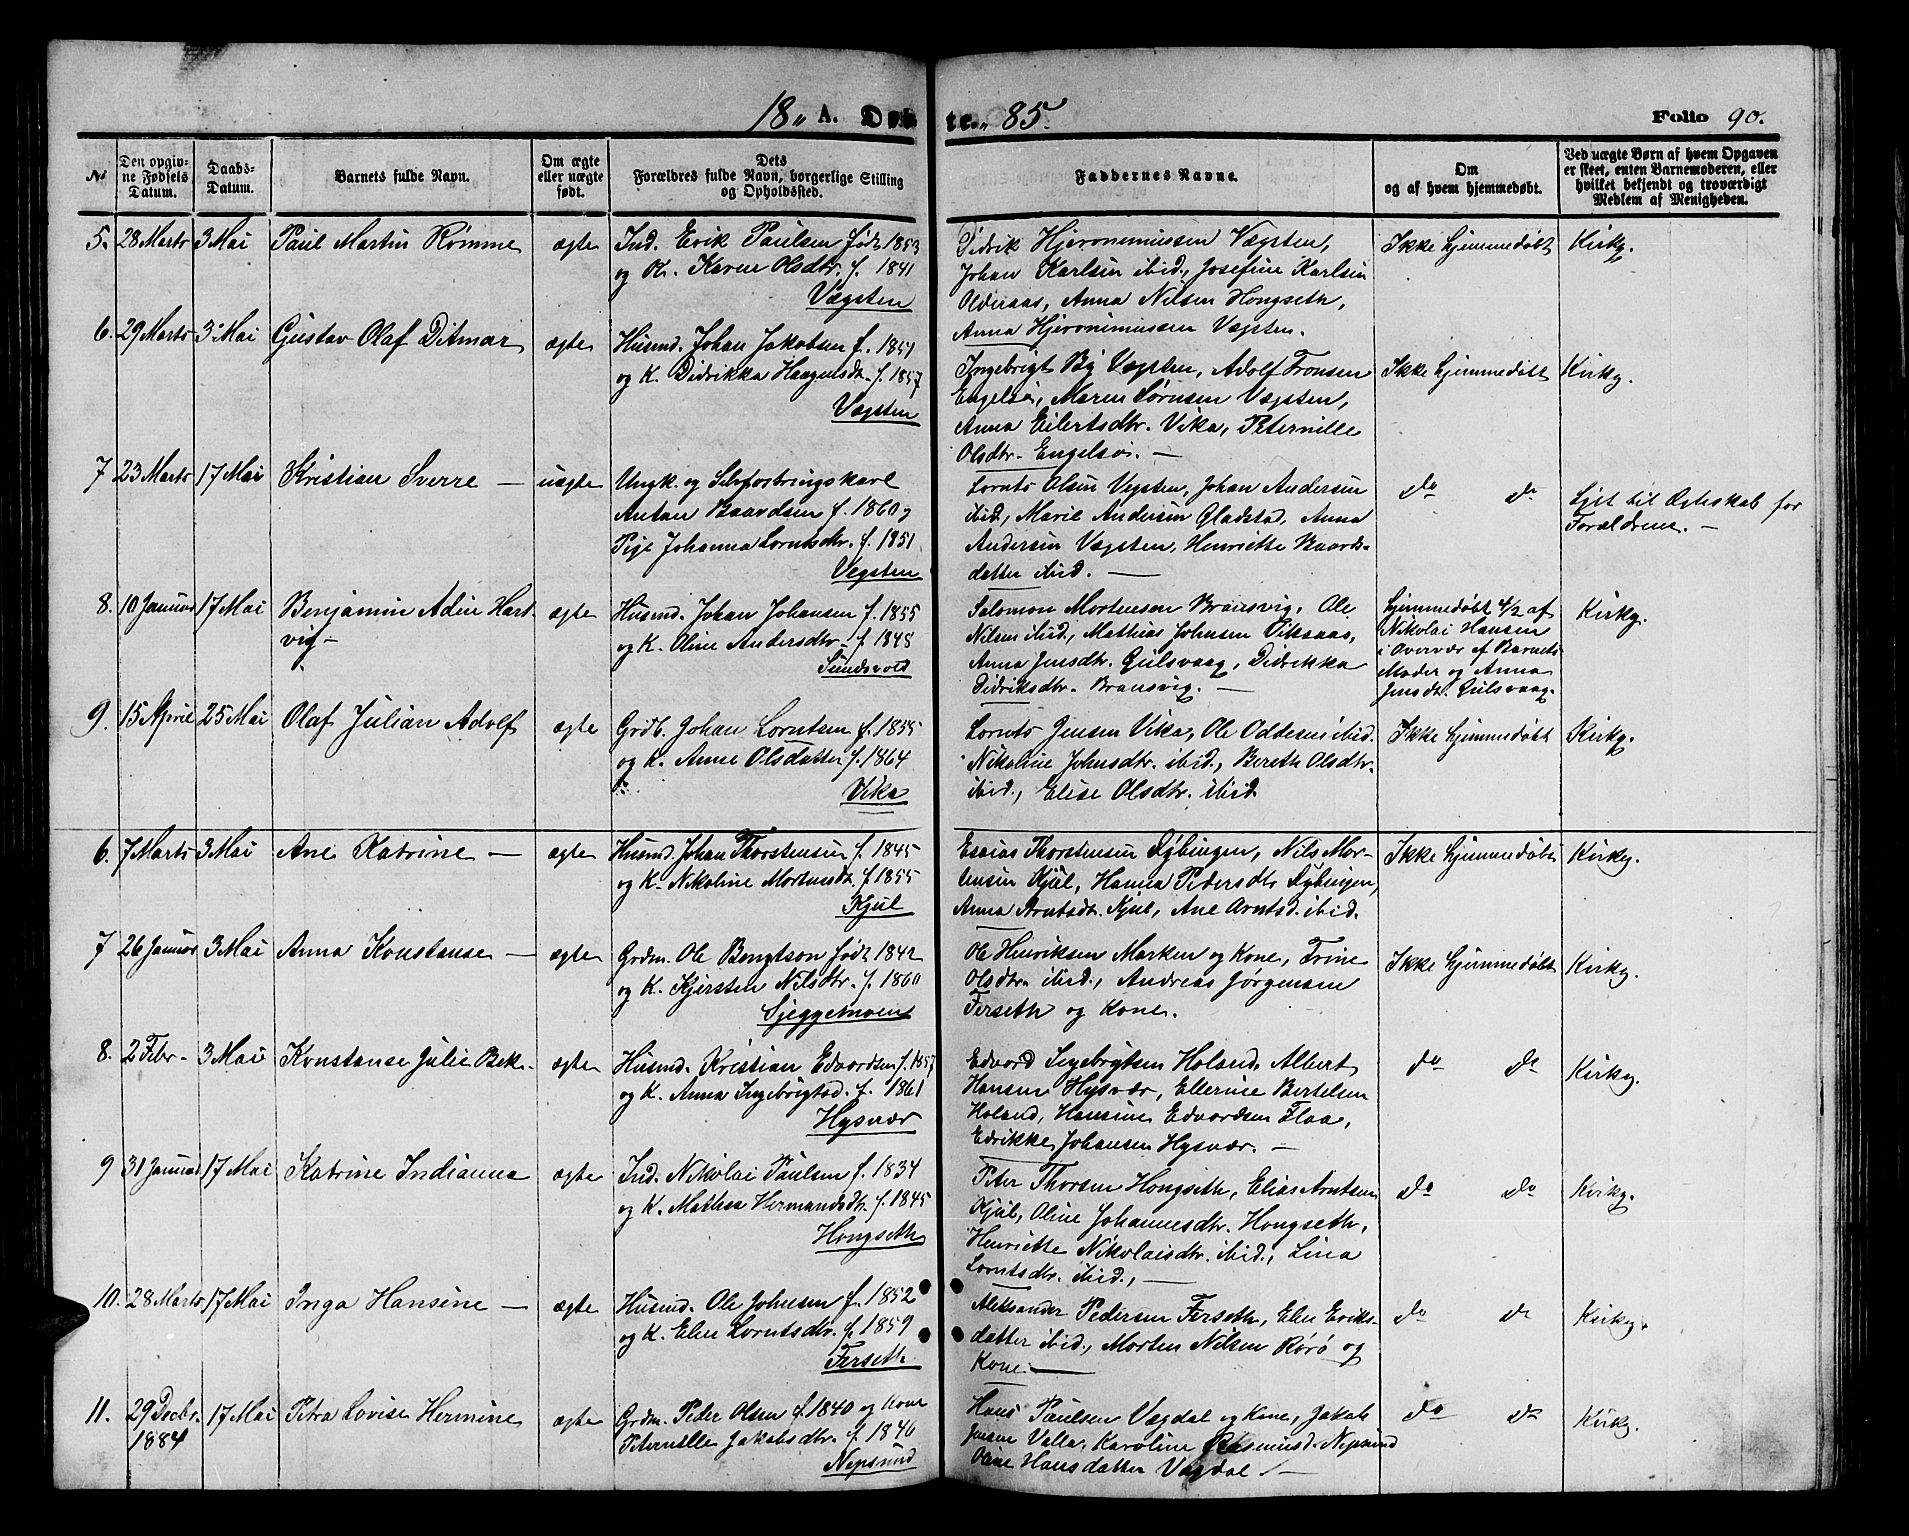 18" A. Døbte. 85.
Folio 90.
No
Den opgivne Fødsels Datum.
Daabs-Datum.
Barnets fulde Navn.
Om ægte eller uægte født.
Dets Forældres fulde Navn, borgerlige Stilling og Opholdssted.
Faddernes Navne.
Om og af hvem hjemmedøbt.
Ved uægte Børn af hvem Opgaven er skeet, enten Barnemoderen, eller hvilket bekjendt og troværdigt Medlem af Menigheden.
5. 28 Marts 3 Mai Paul Martin Rømme ægte Ind. Erik Paulsen født 1853
og K. Karen Olsdtr. f. 1841
Vægsten
Didrik Hjeronimussen Vægsten,
Johan Karlsen ibid., Josefine Karlsen
Olderaas, Anna Nilsen Hongseth,
Anna Hjeronimussen Vægsten.
Ikke hjemmedøbt Kirkg.
6. 29 Marts 3 Mai Gustav Olaf Ditmar ægte Husmd. Johan Jakobsen f. 1851
og K. Didrikka Haagensdt. f. 1857
Vægsten
Ingebrigt By Vægsten, Adolf Tronsen
Engelsøi, Maren Sørnsen Vægsten,
Anna Eilertsdtr. Vika, Peternille
Olsdtr. Engelsøi. —
Ikke hjemmedøbt Kirkg.
7 23 Marts 17 Mai Kristian Sverre — uægte Ungk. og
Anton Baardsen f. 1860 og
Pige Johanna Lorntsdtr. f. 1851.
Vegsten
Lornts Olsen Vegsten, Johan Andersen
ibid., Marie Andersen Gladstad, Anna
Andersen Vægsten, Henriette Baards-
datter ibid. —
do do
Lyst til Ægteskab for
Forældrene. —
8. 10 Januar 17 Mai Benjamin Adin Hart-
vig —
ægte Husmd. Johan Johansen f. 1855
og K. Oline Andersdtr. f. 1848
Sundsvold
Salomon Mortensen Bransvig, Ole
Nilsen ibid., Mathias Johnsen
Anna Jensdtr. Gulsvaag, Didrikka
Didriksdtr. Bransvig. —
Hjemmedøbt 4/2 af
Nikolai Hansen
i Overvær af Barnets
Moder og Anna
Jensdt. Gulsvaag.
Kirkg.
9. 15 April 25 Mai Olaf Julian Adolf ægte Grdb. Johan Lorntsen f. 1855
og K. Anne Olsdatter f. 1864
Vika
Lornts Jensen Vika, Ole Oddesen ibid.
Nikoline Johnsdtr. ibid., Bereth Olsdtr.
ibid., Elise Olsdtr. ibid.
Ikke hjemmedøbt Kirkg.
6. 7 Marts 3 Mai Ane Katrine — ægte Husmd. Johan Thorstensen f. 1845
og K. Nikoline Mortensdt. f. 1855
Kjul
Esaias Thorstensen Dybingen, Nils Mor-
tensen Kjul, Hanna Pedersdtr Dybingen,
Anna Arntsdt. Kjul, Ane Arntsd. ibid.
Ikke hjemmedøbt Kirkg.
7 26 Januar 3 Mai Anna Konstanse — ægte Grdm. Ole Bengtson født 1842
og K. Kjersten Nilsdtr. f. 1860
Sjeggemoen
Ole Henriksen Marken og Kone, Trine
Olsdtr. ibid., Andreas Jørgensen
Ferseth og Kone.
Ikke hjemmedøbt Kirkg.
8. 2 Febr. 3 Mai Konstanse Julie Bek. ægte Husmd. Kristian Edvardsen f. 1857
og K. Anna Ingebrigtsd. f. 1861
Hysvær
Edvard Ingebrigtsen Holand, Albert
Hansen Hysvær, Ellerine Bertelsen
Holand, Hansine Edvardsen Flaa,
Edrikke Johansen Hysvær. —
do do Kirkg.
9 31 Januar 17 Mai Katrine Indianna ægte Ind. Nikolai Paulsen f. 1834
og K. Mathea Hermandsdtr. f. 1845
Hongseth
Peter Thorsen Hongseth, Elias Arntsen
Kjul, Oline Johannesdtr. Hongseth,
Henriette Nikolaisdtr. ibid., Lina
Lorntsdtr. ibid., —
do do Kirkg.
10. 28 Marts 17 Mai Inga Hansine — ægte Husmd. Ole Johnsen f. 1852
og K. Elen Lorntsdtr. f. 1859
Ferseth
Aleksander Pedersen Ferseth, Elen Eriks-
datter ibid., Morten Nilsen Rørø og
Kone. —
do do Kirkg.
11. 29 Decbr. 1884 17 Mai Petra Lovise Hermine ægte Grdm. Peder Olsen f. 1840 og Kone
Peternille Jakobsdtr. f. 1846
Nepsund
Hans Paulsen Vægdal og Kone, Jakob
Jensen Valla, Karoline Rasmusd. Nepsund
Oline Hansdatter Vægdal. —
do do Kirkg.